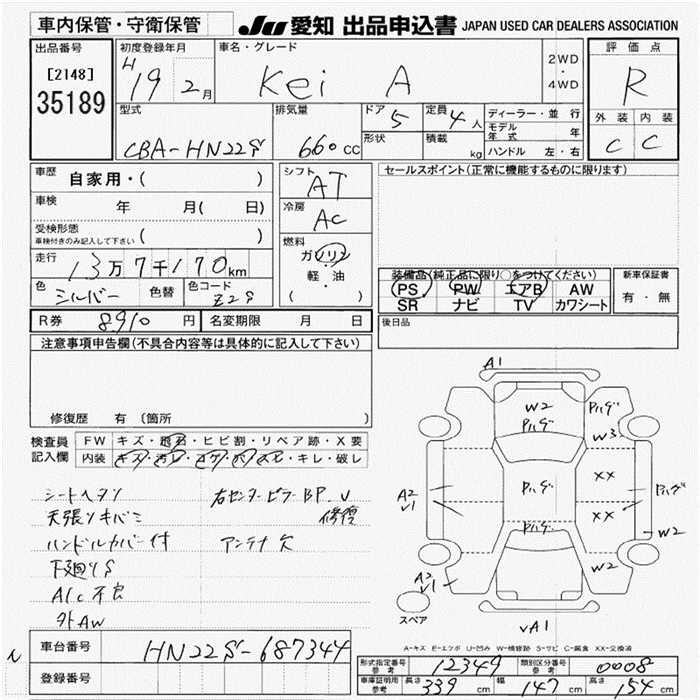 車内保管・守衛保管
JU 愛知 出品申込書 JAPAN USED CAR DEALERS ASSOCIATION
出品番号
[2148]
35189
初度登録年月
H 19 2月
車名・グレード
Kei A
2WD
・
4WD
評価点
R
外装 内装
C C
型式
CBA-HN22S
排気量
660cc
ドア
5
定員
4人
形状
積載
kg
ディーラー・並行
モデル年式 年
ハンドル 左・右
車歴
自家用・( )
車検
年 月( 日)
受検形態
車検付きのみ記入して下さい ( )
走行
13万7千170km
色
シルバー
色替
色コード
Z2S
シフト
AT
冷房
AC
燃料
ガソリン
・
軽・油
( )
セールスポイント(正常に機能するものに限ります)
装備品(純正品に限り○をつけてください)
PS PW エアB AW
SR ナビ TV カワシート
新車保証書
有・無
R券 8910 円
名変期限 月 日
後日品
注意事項申告欄(不具合内容等は具体的に記入して下さい)
修復歴 有 (箇所 )
検査員
記入欄
FW キズ・飛石・ヒビ割・リペア跡・X要
内装 キズ・汚レ・コゲ・穴・スレ・キレ・破レ
シートヘタリ
天張リキバミ
ハンドルカバー付
下廻りS
A/C不良
外AW
右センターピラーBP.U
修復
アンテナ欠
A1
W2
Pハゲ
Pハゲ
W3
Pハゲ
XX
XX
Pハゲ
Pハゲ
W2
W2
A2
√1
A2
√1
√A1
スペア
A-キズ E-エクボ U-凹み W-補修跡 S-サビ C-腐食 XX-交換済
車台番号
HN22S-687344
登録番号
形式指定番号
参考
12349
類別区分番号
参考
0008
車庫証明用
参考
長さ 339 cm
幅 147 cm
高さ 154 cm